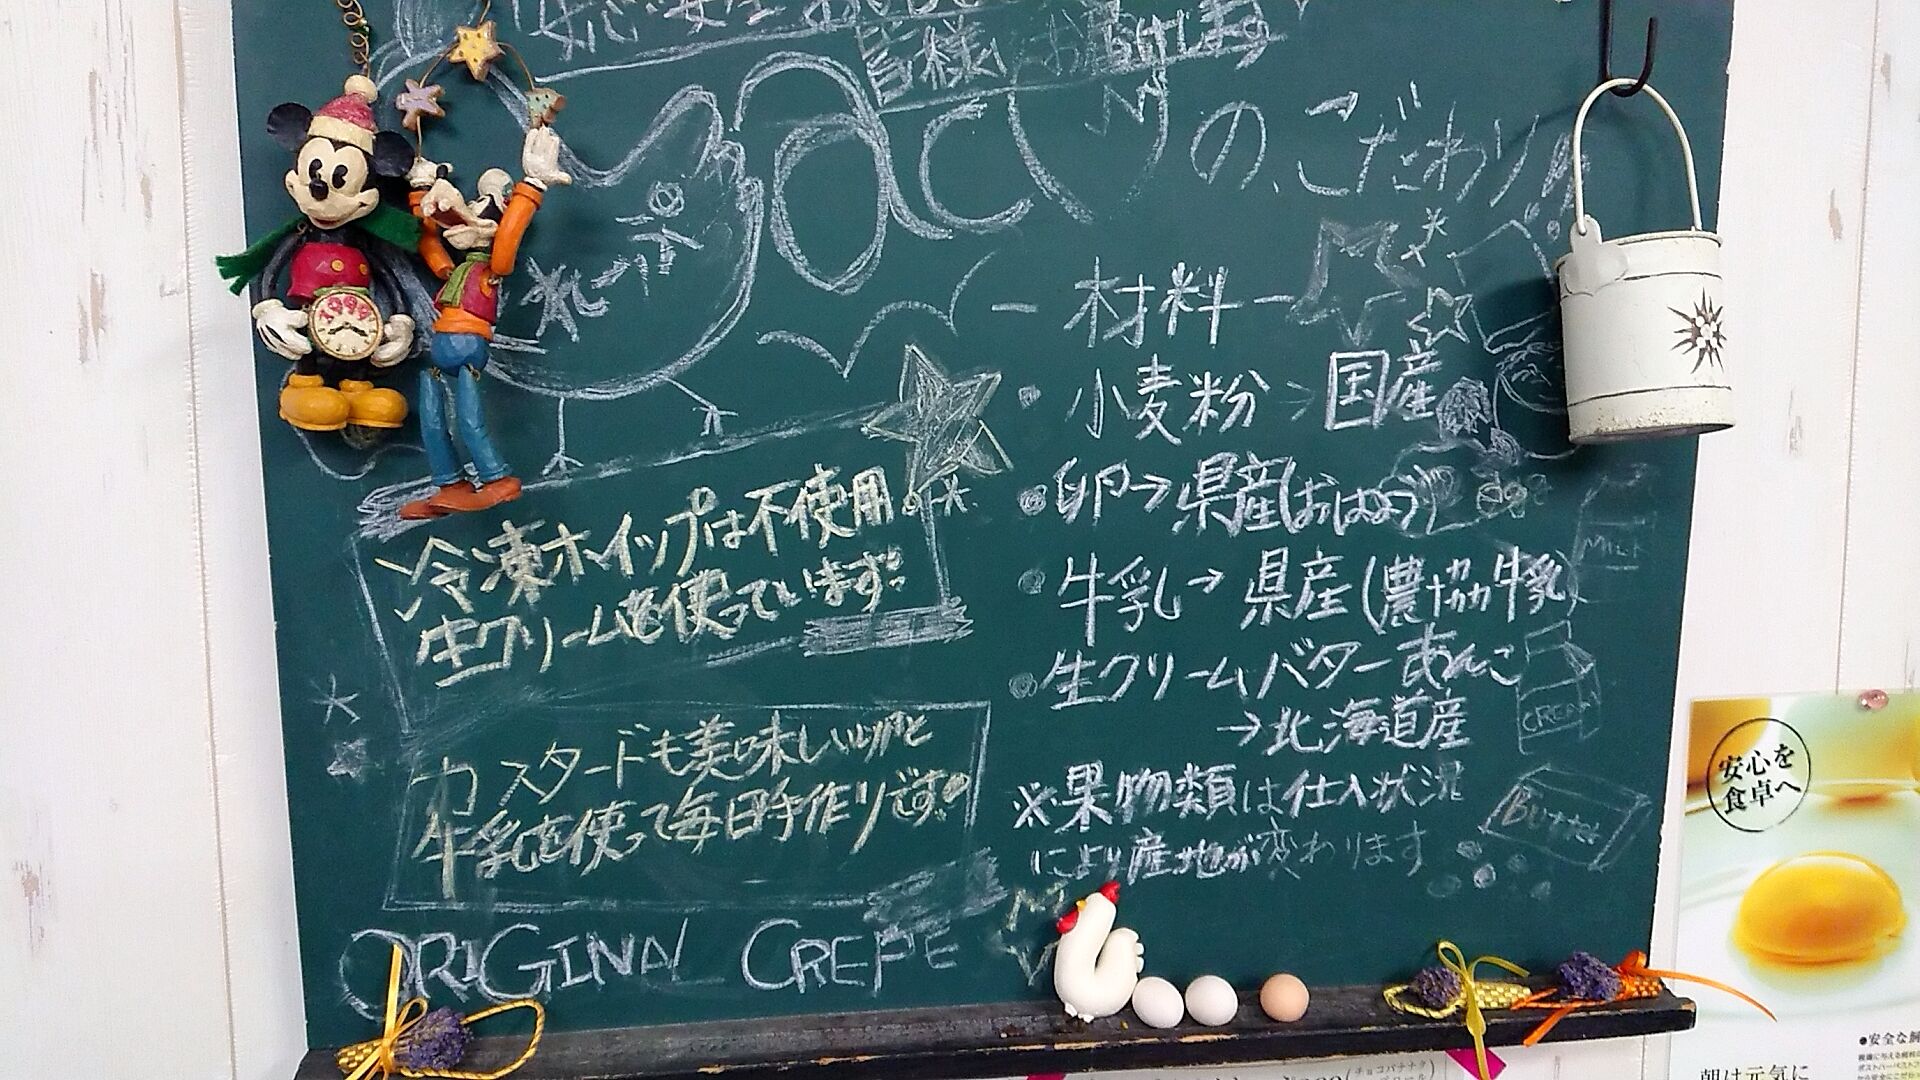 皆様にお届けします
のこだわり!!
ー材料ー
・小麦粉→国産
・卵→県産(おはよう)
・牛乳→県産(農協牛乳)
・生クリームバターあんこ
→北海道産
※果物類は仕入状況
により産地が変わります
冷凍ホイップは不使用
生クリームを使っています!!
カスタードも美味しい卵と
牛乳を使って毎日手作りです。
ORIGINAL CREPE
MILK
CREAM
BUTTER
1999
安心を
食卓へ
●安全な飼
朝は元気に
チョコバナナク